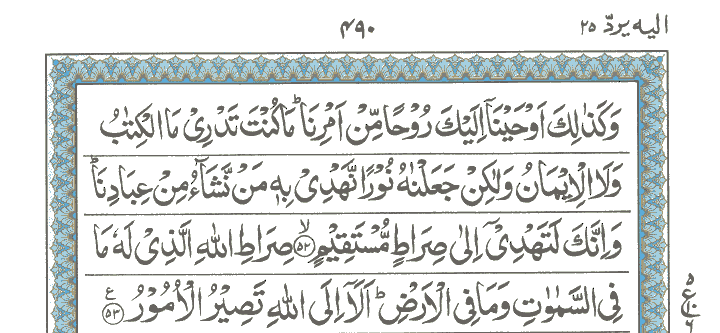 الیه یردّ ۲۵
۴۹۰
وَكَذٰلِكَ اَوْحَيْنَاۤ اِلَيْكَ رُوْحًا مِّنْ اَمْرِنَا ؕ مَا كُنْتَ تَدْرِىْ مَا الْكِتٰبُ
وَلَا الْاِيْمَانُ وَلٰكِنْ جَعَلْنٰهُ نُوْرًا نَّهْدِىْ بِهٖ مَنْ نَّشَآءُ مِنْ عِبَادِنَا ؕ
وَاِنَّكَ لَتَهْدِىْۤ اِلٰى صِرَاطٍ مُّسْتَقِيْمٍۙ ﴿۵۲﴾ صِرَاطِ اللّٰهِ الَّذِىْ لَهٗ مَا
فِى السَّمٰوٰتِ وَمَا فِى الْاَرْضِ ؕ اَلَاۤ اِلَى اللّٰهِ تَصِيْرُ الْاُمُوْرُ ﴿۵۳﴾ ع
۵
ع
۱۰
۶